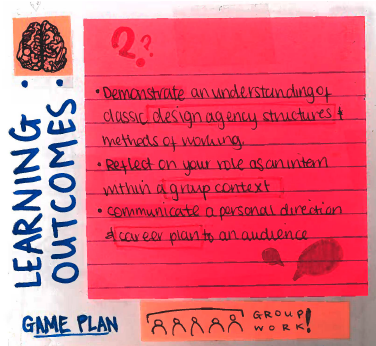 LEARNING OUTCOMES:
2??
• Demonstrate an understanding of
classic design agency structures &
methods of working.
• Reflect on your role as an intern
within a group context
• communicate a personal direction
& career plan to an audience
GAME PLAN
GROUP
WORK!